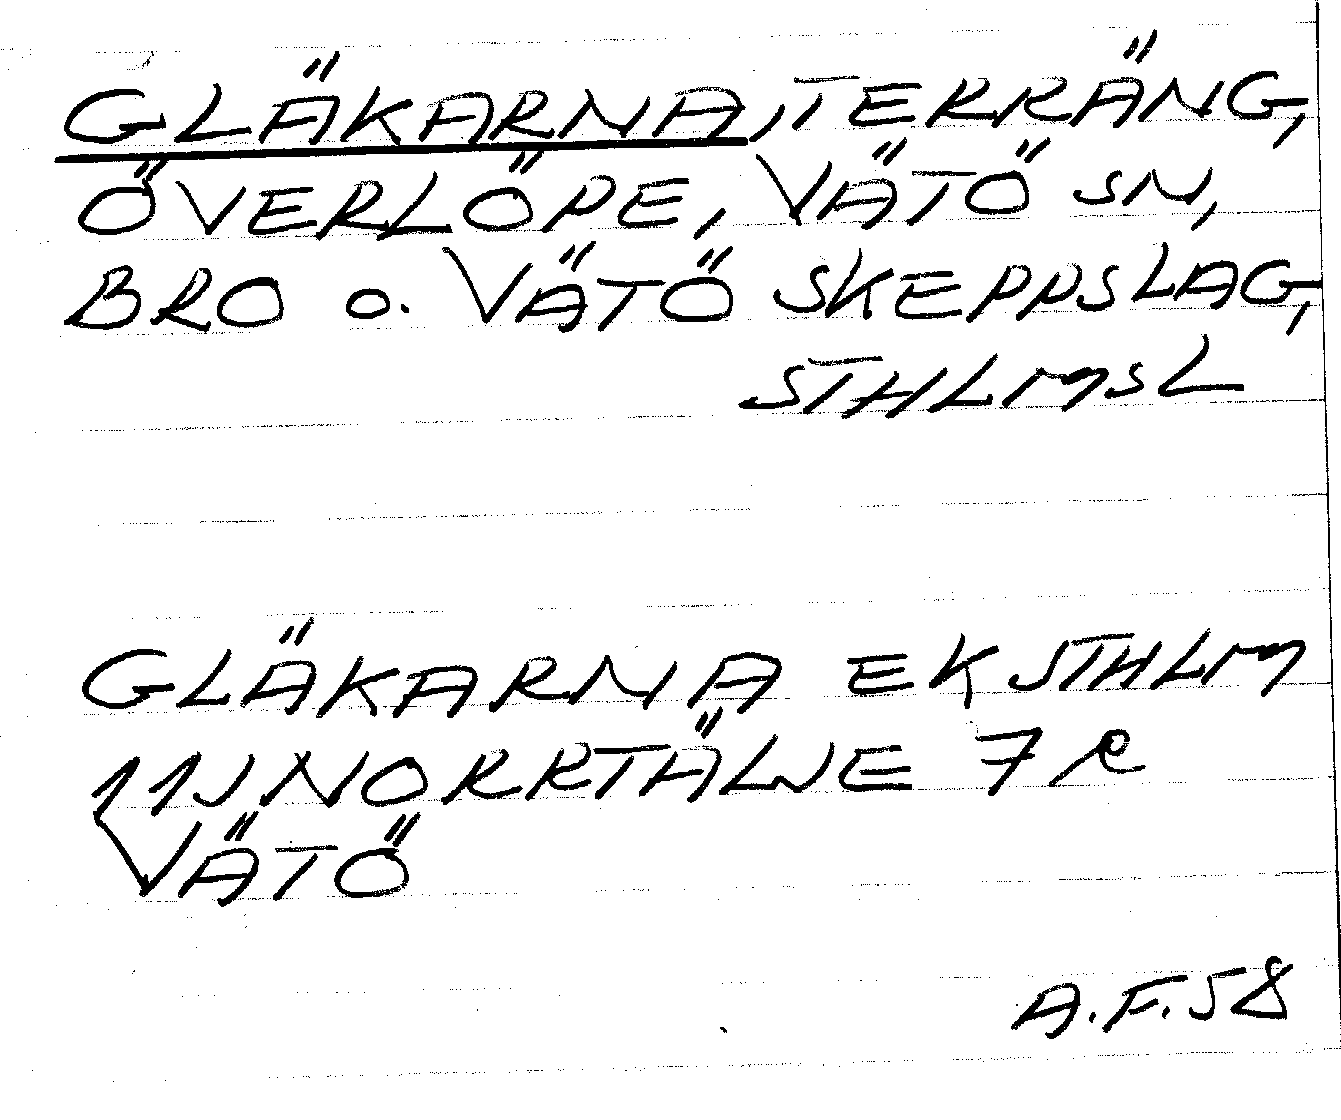 GLÄKARNA, TERRÄNG,
ÖVERLÖPE, VÄTÖ SN,
BRO o. VÄTÖ SKEPPSLAG,
STHLMSL
GLÄKARNA EK STHLM
11J NORRTÄLJE 7R
VÄTÖ
A.F.58